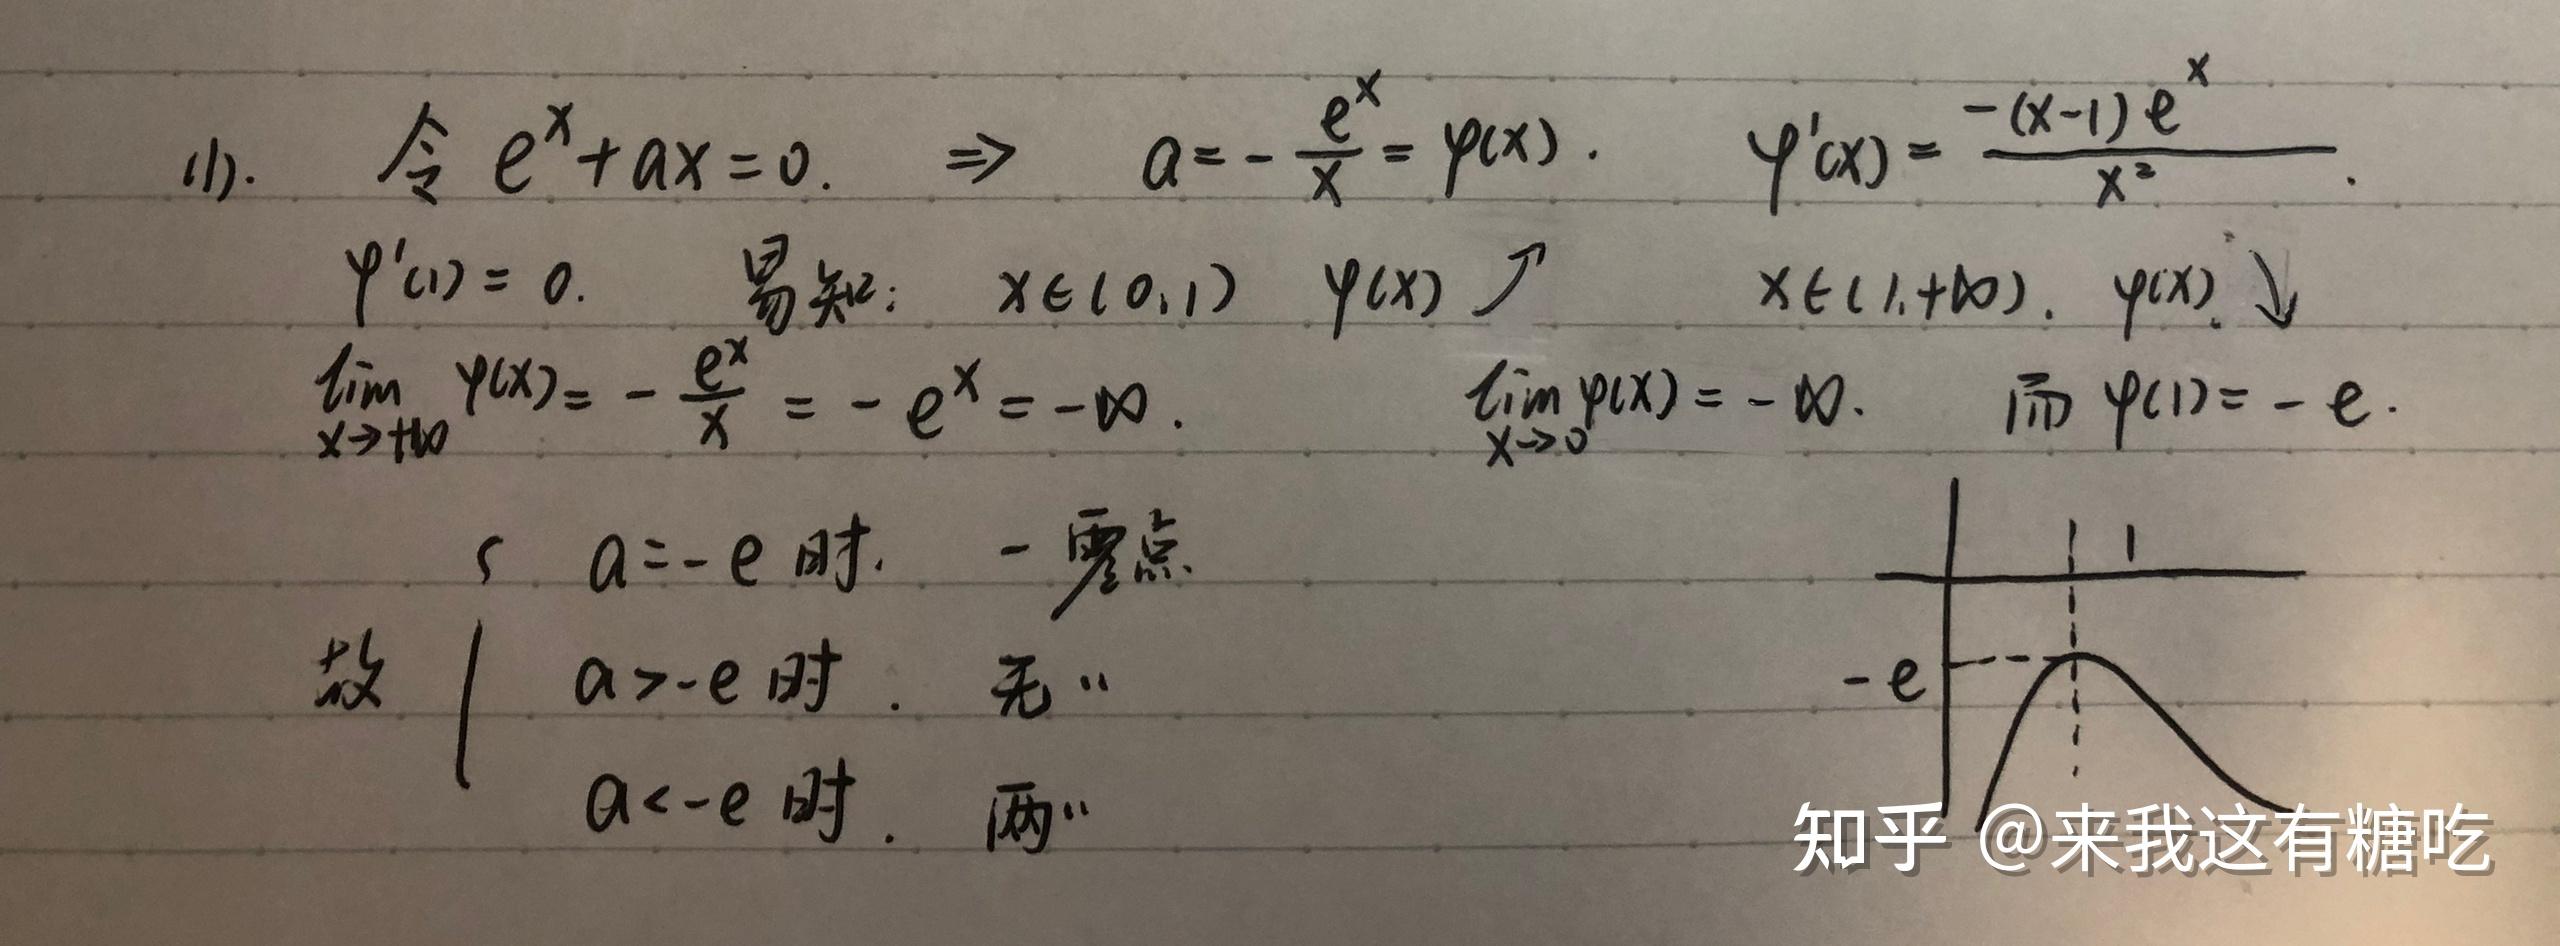 (1). 令 e^x+ax=0. ⇒ a=-e^x/x=φ(x). φ'(x)=-(x-1)e^x/x².
φ'(1)=0. 易知: x∈(0,1) φ(x)↗ x∈(1,+∞). φ(x).↘
lim x→+∞ φ(x)=-e^x/x=-e^x=-∞. lim x→0 φ(x)=-∞. 而 φ(1)=-e.
a=-e 时. 一零点.
1
故 a>-e 时. 无〃
-e
a<-e 时. 两〃
知乎 @来我这有糖吃